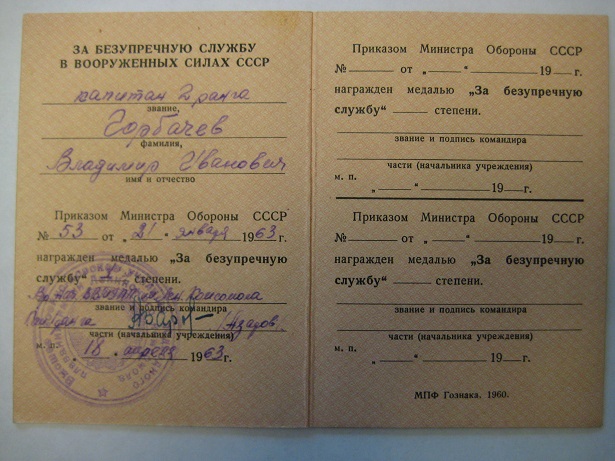 ЗА БЕЗУПРЕЧНУЮ СЛУЖБУ
В ВООРУЖЕННЫХ СИЛАХ СССР
капитан 2 ранга
звание,
Горбачев
фамилия,
Владимир Иванович
имя и отчество
Приказом Министра Обороны СССР
№ 53 от „ 21 " января 1963 г.
награжден медалью „За безупречную
службу“ степени.
Комсомола
звание и подпись командира
части (начальника учреждения)
м. п. „ 18 " апреля 1963 г.
Приказом Министра Обороны СССР
№ от „ “ 19 г.
награжден медалью „За безупречную
службу“ степени.
звание и подпись командира
части (начальника учреждения)
м. п.
„ “ 19 г.
Приказом Министра Обороны СССР
№ от „ “ 19 г.
награжден медалью „За безупречную
службу“ степени.
звание и подпись командира
части (начальника учреждения)
м. п. „ “ 19 г.
МПФ Гознака. 1960.